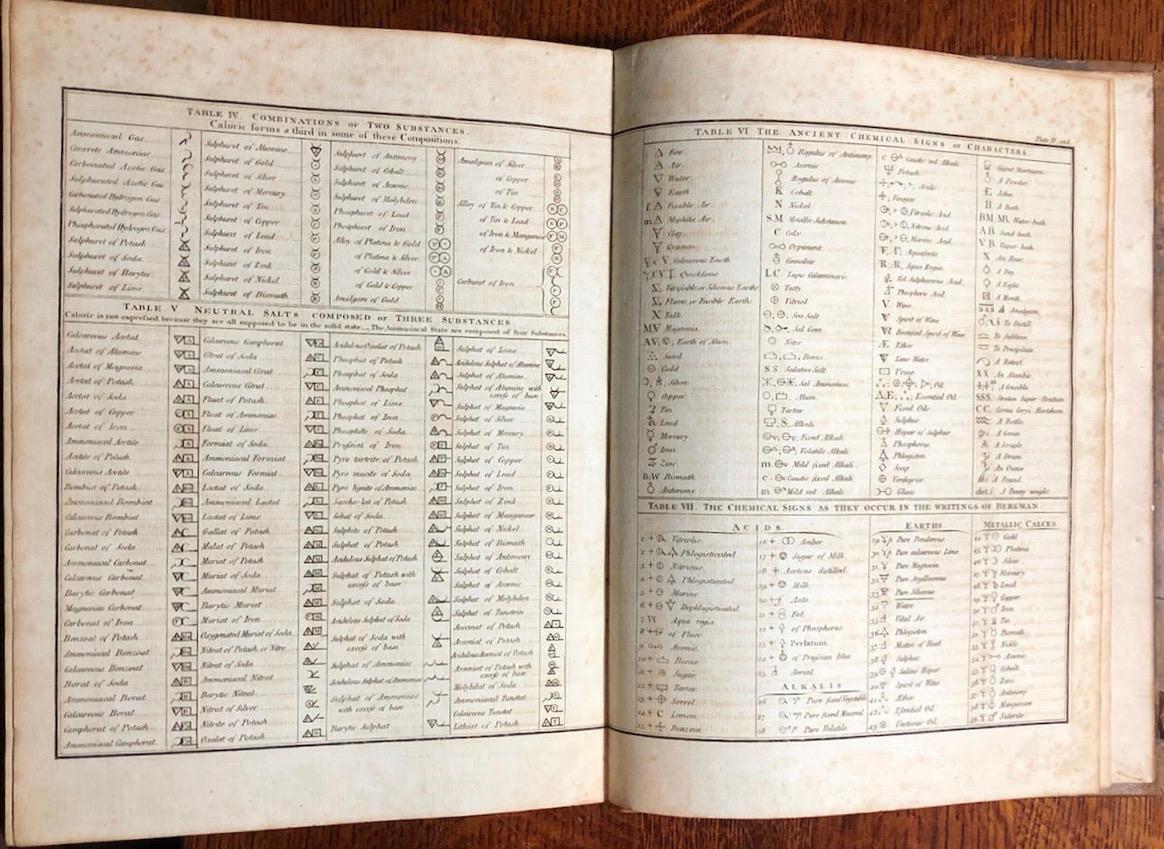 TABLE IV. COMBINATIONS OF TWO SUBSTANCES.
Caloric forms a third in some of these Compositions.
Ammoniacal Gas
Concrete Ammoniac
Carbonated Azotic Gas
Sulphurated Azotic Gas
Carbonated Hydrogen Gas
Sulphurated Hydrogen Gas
Phosphorated Hydrogen Gas
Sulphuret of Potash
Sulphuret of Soda
Sulphuret of Barytes
Sulphuret of Lime
Sulphuret of Alumine
Sulphuret of Gold
Sulphuret of Silver
Sulphuret of Mercury
Sulphuret of Tin
Sulphuret of Copper
Sulphuret of Lead
Sulphuret of Iron
Sulphuret of Zink
Sulphuret of Nickel
Sulphuret of Bismuth
Sulphuret of Antimony
Sulphuret of Cobalt
Sulphuret of Arsenic
Sulphuret of Molybden
Phosphuret of Lead
Phosphuret of Iron
Alloy of Platina & Gold
of Platina & Silver
of Gold & Silver
of Gold & Copper
Amalgam of Gold
Amalgam of Silver
of Copper
of Tin
Alloy of Tin & Copper
of Tin & Lead
of Iron & Manganese
of Iron & Nickel
Carburet of Iron
TABLE V NEUTRAL SALTS COMPOSED OF THREE SUBSTANCES
Caloric is not expressed, because they are all supposed to be in the solid state. The Ammoniacal State are composed of four Substances.
Calcareous Acetat
Acetat of Alumine
Acetat of Magnesia
Acetat of Potash
Acetat of Soda
Acetat of Copper
Acetat of Iron
Ammoniacal Acetite
Acetite of Potash
Calcareous Acetite
Bombiat of Potash
Ammoniacal Bombiat
Calcareous Bombiat
Carbonat of Potash
Carbonat of Soda
Ammoniacal Carbonat
Calcareous Carbonat
Barytic Carbonat
Magnesian Carbonat
Carbonat of Iron
Benzoat of Potash
Ammoniacal Benzoat
Calcareous Benzoat
Borat of Soda
Ammoniacal Borat
Calcareous Borat
Camphorat of Potash
Ammoniacal Camphorat
Calcareous Camphorat
Citrat of Soda
Ammoniacal Citrat
Calcareous Citrat
Fluat of Potash
Fluat of Ammoniac
Fluat of Lime
Formiat of Soda
Ammoniacal Formiat
Calcareous Formiat
Lactat of Soda
Ammoniacal Lactat
Lactat of Lime
Gallat of Potash
Malat of Potash
Muriat of Potash
Muriat of Soda
Ammoniacal Muriat
Barytic Muriat
Muriat of Iron
Oxygenated Muriat of Soda
Nitrat of Potash, or Nitre
Nitrat of Soda
Ammoniacal Nitrat
Barytic Nitrat
Nitrat of Silver
Nitrite of Potash
Oxalat of Potash
Acidulous Oxalat of Potash
Phosphat of Potash
Phosphat of Soda
Ammoniacal Phosphat
Phosphat of Lime
Phosphat of Iron
Phosphite of Soda
Prussiat of Iron
Pyro tartrite of Potash
Pyro mucite of Soda
Pyro lignite of Ammoniac
Saccho-lat of Potash
Sebat of Soda
Sulphite of Potash
Sulphat of Potash
Acidulous Sulphat of Potash
Sulphat of Potash with
excess of base
Sulphat of Soda
Acidulous Sulphat of Soda
Sulphat of Soda with
excess of base
Sulphat of Ammoniac
Acidulous Sulphat of Ammoniac
Sulphat of Ammoniac
with excess of base
Barytic Sulphat
Sulphat of Lime
Acidulous Sulphat of Alumine
Sulphat of Alumine
Sulphat of Alumine with
excess of base
Sulphat of Magnesia
Sulphat of Silver
Sulphat of Mercury
Sulphat of Tin
Sulphat of Copper
Sulphat of Lead
Sulphat of Iron
Sulphat of Zink
Sulphat of Manganese
Sulphat of Nickel
Sulphat of Bismuth
Sulphat of Antimony
Sulphat of Cobalt
Sulphat of Arsenic
Sulphat of Molybden
Sulphat of Tunstein
Succinat of Potash
Arseniat of Potash
Acidulous Arseniat of Potash
Arseniat of Potash with
excess of base
Molybdat of Soda
Ammoniacal Tunstat
Calcareous Tunstat
Lithiat of Potash
Plate II. 2nd.
TABLE VI THE ANCIENT CHEMICAL SIGNS or CHARACTERS.
Fire
Air
Water
Earth
Fixable Air
Mephitic Air
Clay
Gypsum
Calcareous Earth
Quicklime
Vitrifiable, or Siliceous Earths
Fluors, or Fusible Earths
X Talk
M Magnesia
Earth of Alum
Sand
Gold
Silver
Copper
Tin
Lead
Mercury
Iron
Zinc
B.W Bismuth
Antimony
Regulus of Antimony
Arsenic
Regulus of Arsenic
K Cobalt
N Nickel
S.M. Metallic Substances
C Calx
Orpiment
Cinnabar
L.C Lapis Calaminaris
Tutty
Vitriol
Sea Salt
Sal Gem
Nitre
Borax
S.S. Sedative Salt
Sal Ammoniac
Alum
Tartar
Alkali
Fixed Alkali
Volatile Alkali
m. Mild fixed Alkali
c. Caustic fixed Alkali
m. Mild vol. Alkali
c. Caustic vol. Alkali
Potash
Acids
Vinegar
Vitriolic Acid
Nitrous Acid
Marine Acid
Aquafortis
Aqua Regia
Vol. Sulphureous Acid
Phosphoric Acid
V. Wine
Spirit of Wine
Rectified Spirit of Wine
Æther
Lime Water
Urine
Oil
Essential Oil
Fixed Oils
Sulphur
Hepar of Sulphur
Phosphorus
Phlogiston
Soap
Verdigrise
Glass
Caput Mortuum
A Powder
E. Ashes
B A Bath
BM, MB, Water-bath
A.B Sand-bath
V.B. Vapor-bath
X An Hour
A Day
A Night
A Month
aaa Amalgam
To Distill
To Sublime
To Precipitate
A Retort
XX An Alembic
A Crucible
SSS Stratum Super Stratum
C.C. Cornu Cervi, Hartshorn
A Bottle
A Grain
A Scruple
A Dram
An Ounce
A Pound
A Penny weight
TABLE VII. THE CHEMICAL SIGNS AS THEY OCCUR IN THE WRITINGS OF BERGMAN
ACIDS.
Vitriolic
Phlogisticated
Nitrous
Phlogisticated
Marine
Dephlogisticated
Aqua regia
of Fluor
Arsenic
Borax
Sugar
Tartar
Sorrel
Lemon
Benzoin
Amber
Sugar of Milk
Acetous distilled
Milk
Ants
Fat
of Phosphorus
Perlatum
of Prussian blue
Aerial
ALKALIS
Pure fixed Vegetable
Pure fixed Mineral
Pure Volatile
EARTHS
Pure Ponderous
Pure calcareous Lime
Pure Magnesia
Pure Argillaceous
Pure Siliceous
Water
Vital Air
Phlogiston
Sulphur
Saline Hepar
Spirit of Wine
Ether
Essential Oil
Unctuous Oil
METALLIC CALCES
Gold
Platina
Silver
Mercury
Lead
Copper
Iron
Tin
Bismuth
Nickle
Arsenic
Cobalt
Zinc
Antimony
Manganese
Siderite